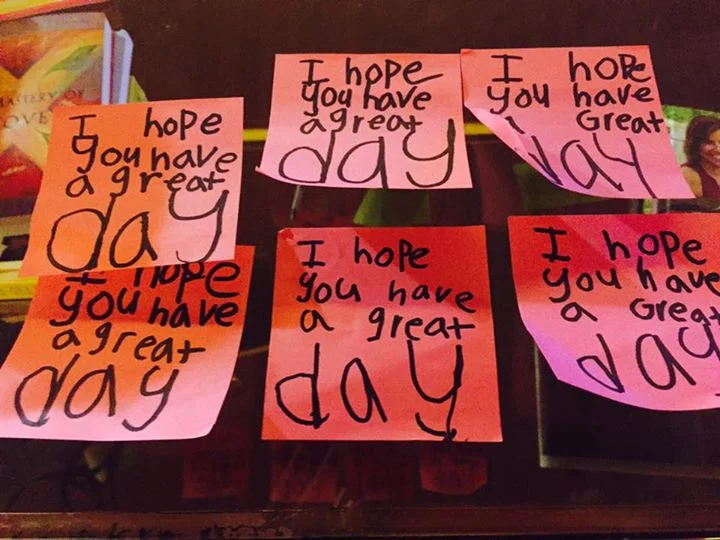 MASTERY OF
LOVE
I hope
you have
a great
day
I hope
you have
a great
day
I hope
you have
a Great
day
I hope
you have
a great
day
I hope
you have
a great
day
I hope
you have
a Great
day